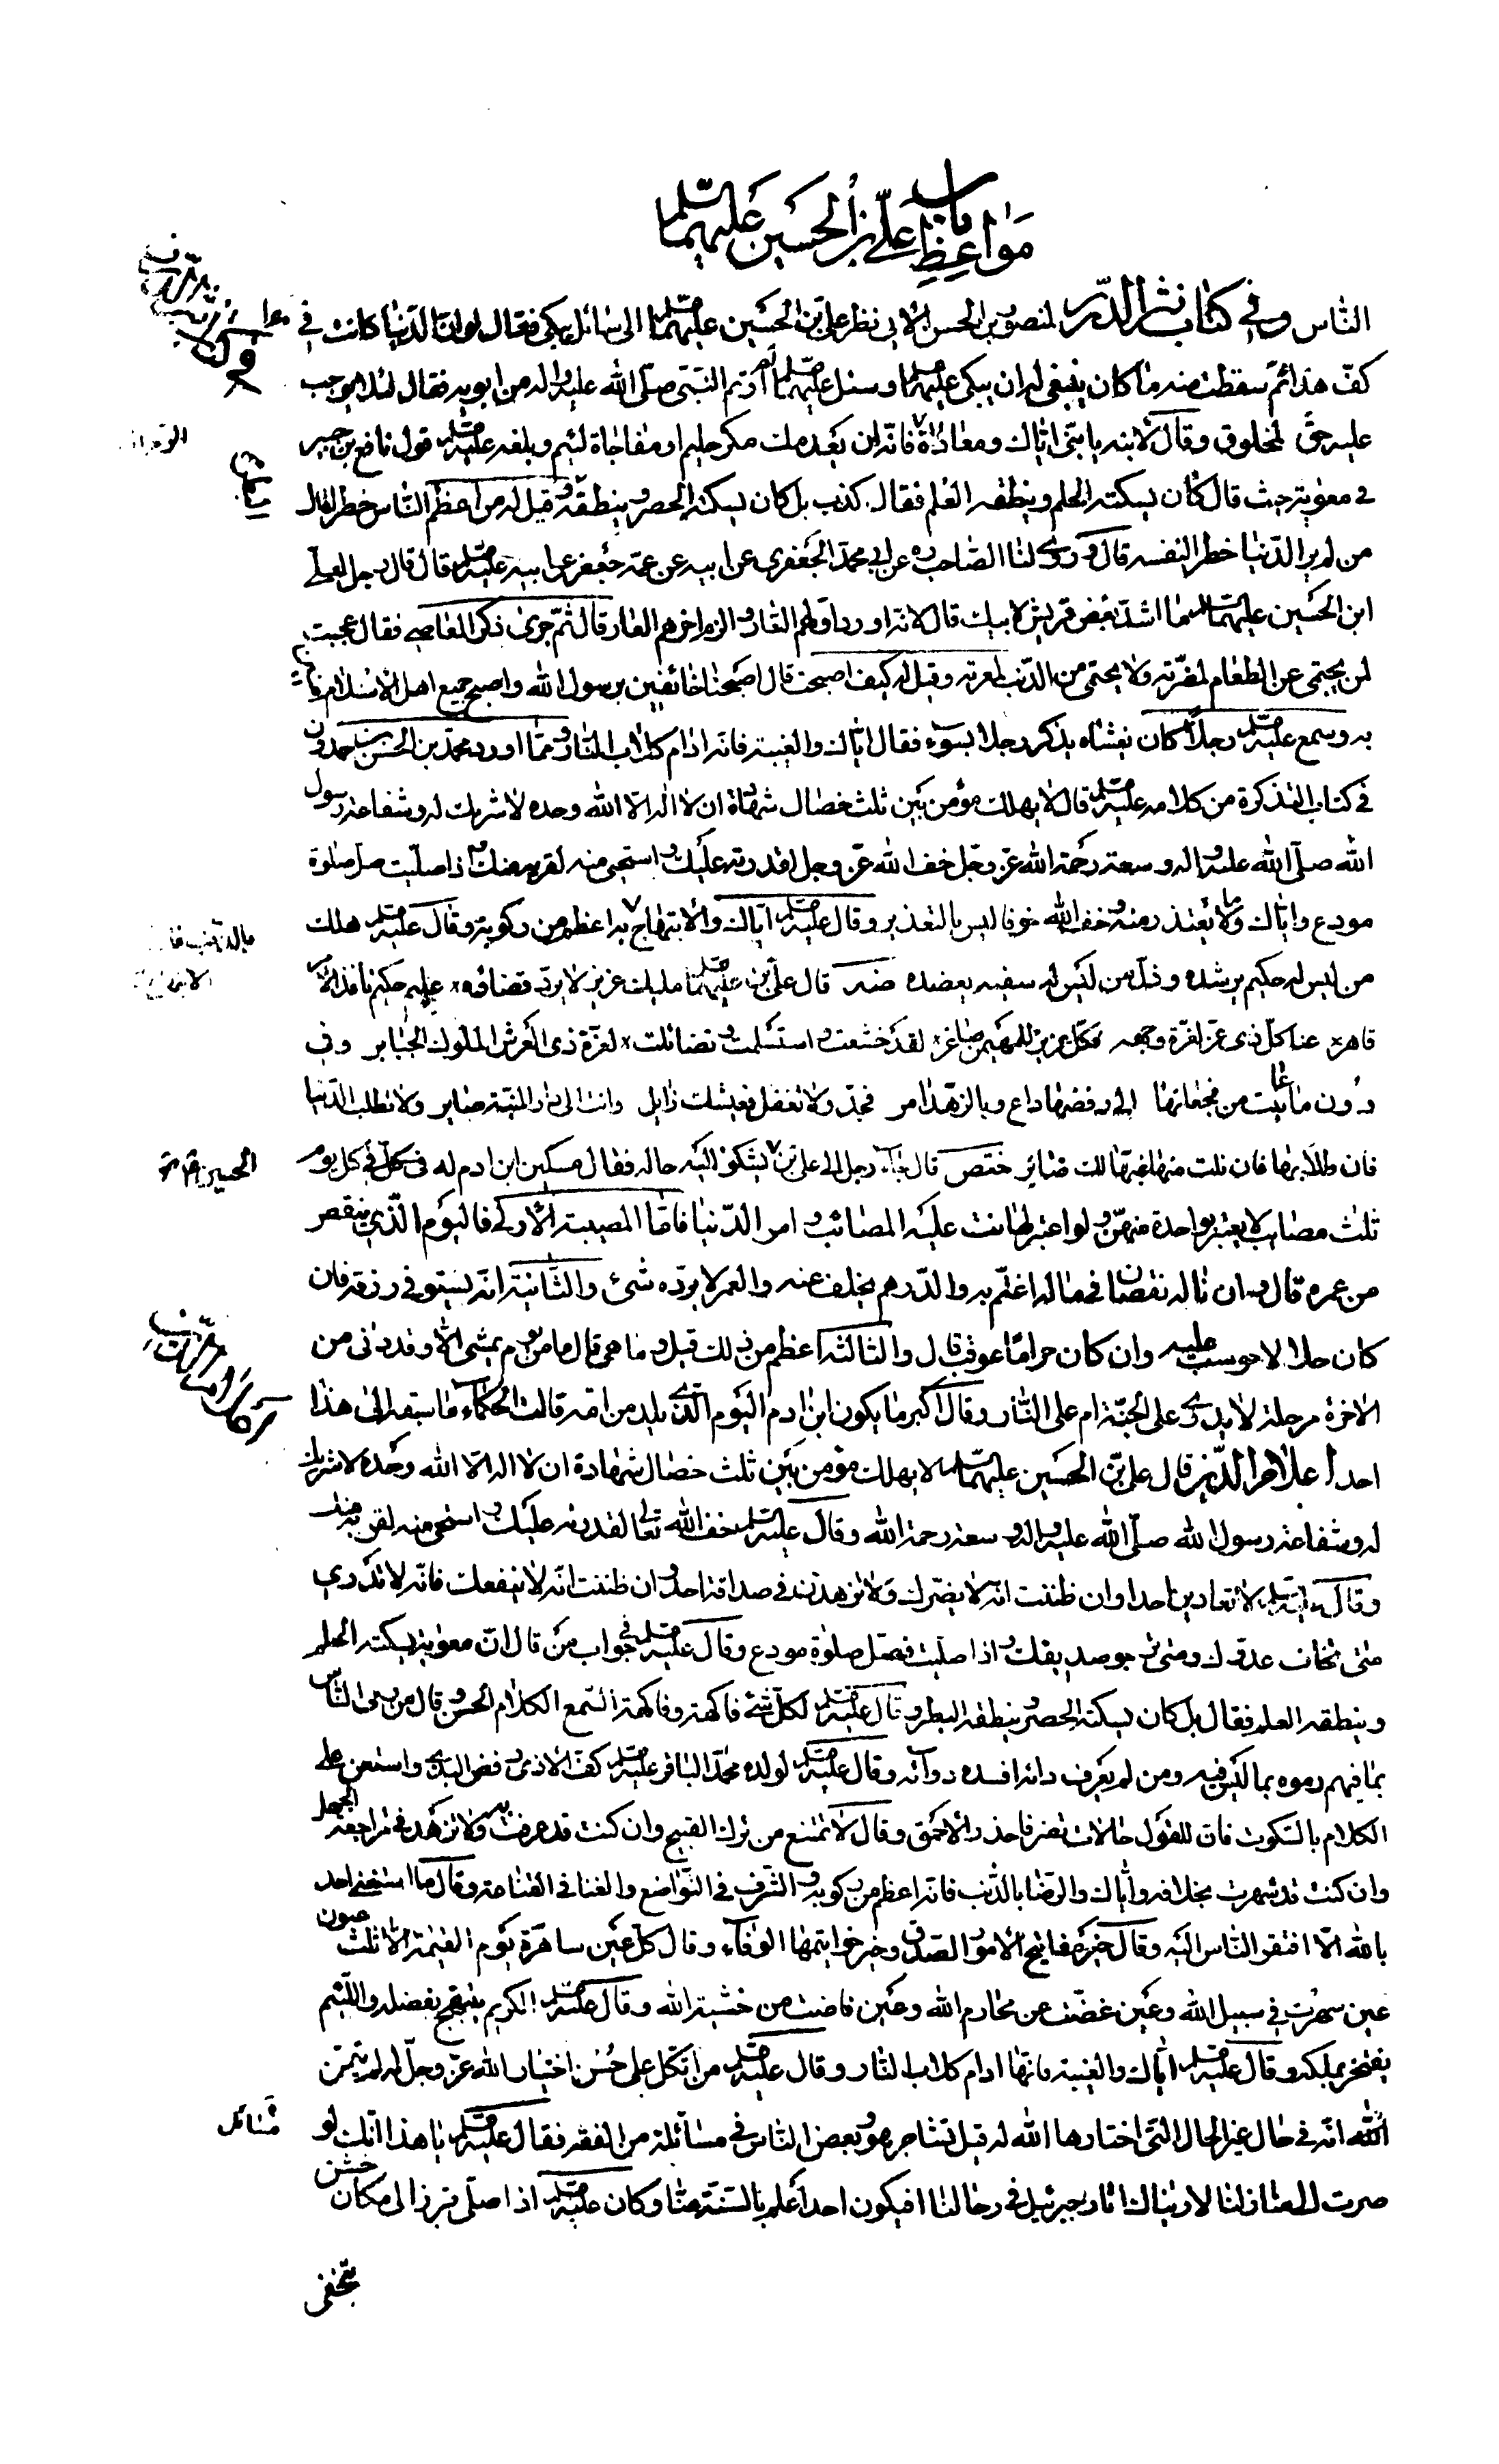 باب
مواعظ علي بن الحسين عليهما السلم
الناس وفي كتاب نثر الدرر لمنصور بن الحسن الابي نظر علي بن الحسين عليهما السلم الى سائل يبكي فقال لو ان الدنيا كانت في
كف هذا ثم سقطت منه ما كان ينبغي له ان يبكي عليها وسئل عليه السلم لم اوتم النبي صلى الله عليه واله من ابويه فقال لئلا يوجب
عليه حق لمخلوق وقال لابنه يا بني اياك ومعاداة فانه لن يعدمك مكر حليم او مفاجاة لئيم وبلغه عليه السلم قول نافع بن جبير
في معوية حيث قال كان يسكته الحلم وينطقه العلم فقال كذب بل كان يسكته الحصر وينطقه وقيل له من اعظم الناس خطرا فقال
من لم ير الدنيا خطرا لنفسه قال وروى لنا الصاحب ره عن ابي محمد الجعفري عن ابيه عن عمه جعفر عن ابيه عليه السلم قال قال رجل لعلي
ابن الحسين عليهما السلم ما اشد بغض قريش لابيك قال لانه اورد اولهم النار والزم اخرهم العار قال ثم جرى ذكر المعاصي فقال عجبت
لمن يحتمي عن الطعام لمضرته ولا يحتمي من الذنب لمعرته وقيل له كيف اصبحت قال اصبحنا خائفين برسول الله واصبح جميع اهل الاسلام
به وسمع عليه السلم رجلا كان يغشاه يذكر رجلا بسوء فقال اياك والغيبة فانه ادام كلاب النار ومما اورد محمد بن الحسن بن حمدون
في كتاب التذكرة من كلامه عليه السلم قال لا يهلك مؤمن بين ثلث خصال شهادة ان لا اله الا الله وحده لا شريك له وشفاعة رسول
الله صلى الله عليه واله وسعة رحمة الله عز وجل خف الله عز وجل لقدرته عليك واستحي منه لقربه منك اذا صليت صل صلوة
مودع واياك وما يعتذر منه وخف الله خوفا ليس بالتعذير وقال عليه السلم اياك والابتهاج به اعظم من ركوبه وقال عليه السلم هلك
من ليس له حكيم يرشده وذل من ليس له سفيه يعضده قال علي بن عليهما السلم مليك عزيز لا يرد قضاؤه عليم حكيم نافذ الامر
قاهر عنا كل ذي عز لعزة وجهه فكل عزيز للمهيمن صاغر لقد خشعت واستسلمت وتضائلت لعزة ذي العرش الملوك الجبابر وفي
دون ما عاينت من فجعاتها الى رفضها داع وبالزهد امر فجد ولا تغفل فعيشك زايل وانت الى دار المنية صاير ولا تطلب الدنيا
فان طلابها فان نلت منها غبها لك ضائر ختص قال جاء رجل الى علي بن يشكو اليه حاله فقال مسكين ابن ادم له في كل يوم
ثلث مصائب لا يعتبر بواحدة منهن ولو اعتبر لهانت عليه المصائب وامر الدنيا فاما المصيبة الاولى فاليوم الذي ينقص
من عمره قال وان ناله نقصان في ماله اغتم به والدرهم يخلف عنه والعمر لا يرده شئ والثانية انه يستوفي رزقه فان
كان حلالا حوسب عليه وان كان حراما عوقب قال والثالثة اعظم من ذلك قيل وما هي قال ما من يوم يمشي الا وقد دنى من
الاخرة مرحلة لا يدري على الجنة ام على النار وقال اكبر ما يكون ابن ادم اليوم الذي يلد من امه قالت الحكماء ما سبقه الى هذا
احد اعلام الدين قال علي بن الحسين عليهما السلم لا يهلك مؤمن بين ثلث خصال شهادة ان لا اله الا الله وحده لا شريك
له وشفاعة رسول الله صلى الله عليه واله وسعة رحمة الله وقال عليه السلم خف الله تعالى لقدرته عليك واستحي منه لقربه منك
وقال عليه السلم لا تعادين احدا وان ظننت انه لا يضرك ولا تزهدن في صداقة احد وان ظننت انه لا ينفعك فانه لا تدري
متى تخاف عدوك ومتى ترجو صديقك واذا صليت فصل صلوة مودع وقال عليه السلم في جواب من قال ان معوية يسكته الحلم
وينطقه العلم فقال بل كان يسكته الحصر وينطقه البطر وقال عليه السلم لكل شئ فاكهة وفاكهة السمع الكلام الحسن وقال من رمى الناس
بما فيهم رموه بما ليس فيه ومن لم يعرف داءه افسده دواؤه وقال عليه السلم لولده محمد الباقر عليه السلم كف الاذى وفض الندى واستعن على
الكلام بالسكوت فان للقول حالات تضر فاحذر الاحمق وقال لا تمتنع من ترك القبيح وان كنت قد عرفت به ولا تزهد في مراجعة الجهل
وان كنت قد شهرت بخلافه واياك والرضا بالذنب فانه اعظم من ركوبه والشرف في التواضع والغنا في القناعة وقال ما استغنى احد
بالله الا افتقر الناس اليه وقال خير مفاتيح الامور الصدق وخير خواتيمها الوفاء وقال كل عين ساهرة يوم القيمة الا ثلث عيون
عين سهرت في سبيل الله وعين غضت عن محارم الله وعين فاضت من خشية الله وقال عليه السلم الكريم يبتهج بفضله واللئيم
يفتخر بملكه وقال عليه السلم اياك والغيبة فانها ادام كلاب النار وقال عليه السلم من اتكل على حسن اختيار الله عز وجل له لم يتمن
انه في حال غير الحال التي اختارها الله له قيل تشاجر هو وبعض الناس في مسائلة من الفقه فقال عليه السلم يا هذا انك لو
صرت الى منازلنا لاريناك اثار جبرئيل في رحالنا افيكون احد اعلم بالسنة منا وكان عليه السلم اذا صلى تبرز الى مكان خشن
الحسين
مسائل
يتخفى